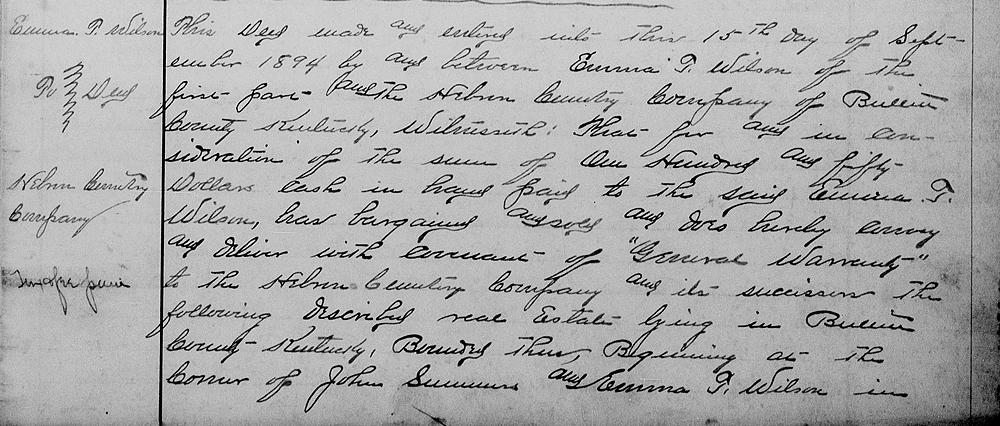 Emma. T. Wilson
To Deed
Hebron Cemetery
Company
This Deed made and entered into this 15th day of Sept-
ember 1894 by and between Emma T. Wilson of the
first part and the Hebron Cemetery Company of Bullitt
County Kentucky, Witnesseth: That for and in con-
sideration of the sum of One Hundred and fifty
Dollars cash in hand paid to the said Emma. T.
Wilson, has bargained and sold and does hereby convey
and deliver with covenant of "General Warranty"
to the Hebron Cemetery Company and its successors the
following described real Estate lying in Bullitt
County Kentucky, Bounded thus, Beginning at the
Corner of John Summers and Emma T. Wilson in